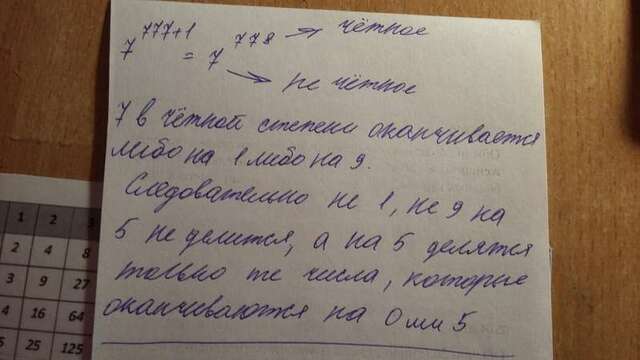 7^777+1 = 7^778 → чётное
→ не чётное
7 в чётной степени оканчивается
либо на 1 либо на 9.
Следовательно не 1, не 9 на
5 не делится, а на 5 делятся
только те числа, которые
оканчиваются на 0 или 5
1 2 3
2 4 8
3 9 27
4 16 64
5 25 125